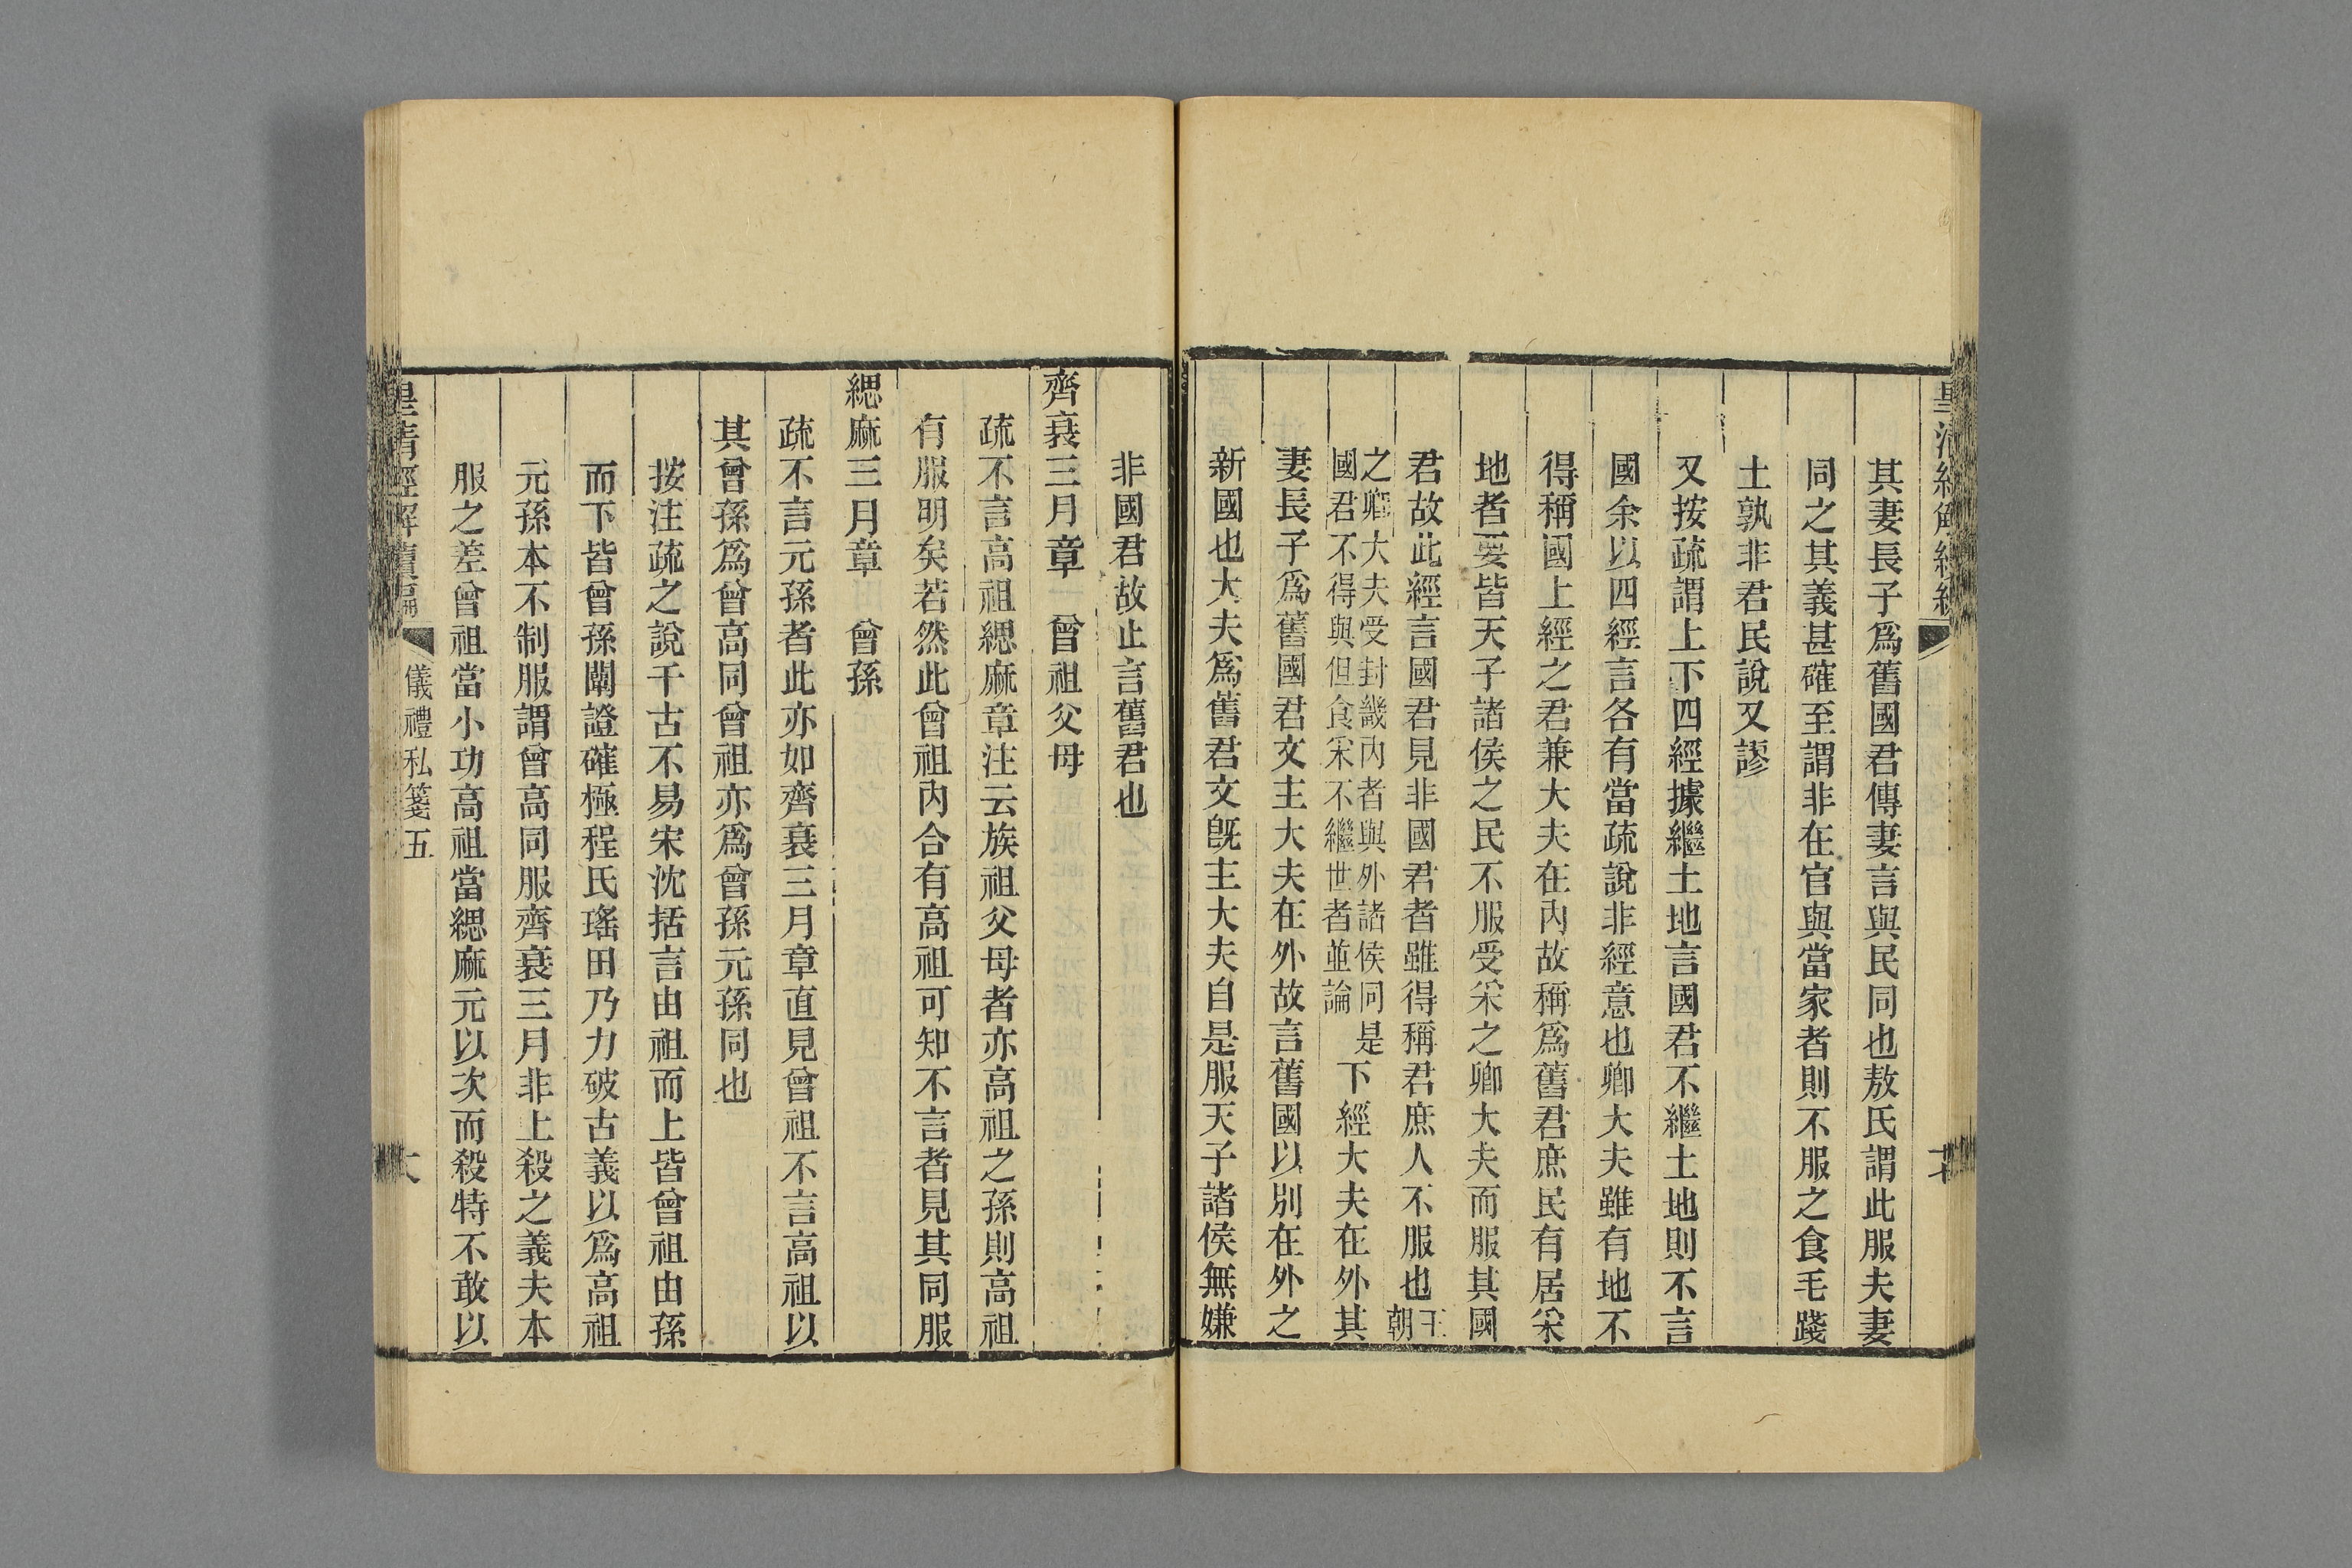 其妻長子爲舊國君傳妻言與民同也敖氏謂此服夫妻
同之其義甚確至謂非在官與當家者則不服之食毛踐
土孰非君民說又謬
又按疏謂上下四經據繼土地言國君不繼土地則不言
國余以四經言各有當疏說非經意也卿大夫雖有地不
得稱國上經之君兼大夫在內故稱爲舊君庶民有居采
地者要皆天子諸侯之民不服受采之卿大夫而服其國
君故此經言國君見非國君者雖得稱君庶人不服也王朝
之卿大夫受封畿內者與外諸侯同是
國君不得與但食采不繼世者並論
下經大夫在外其
妻長子爲舊國君文主大夫在外故言舊國以別在外之
新國也大夫爲舊君文旣主大夫自是服天子諸侯無嫌
非國君故止言舊君也
齊衰三月章 曾祖父母
疏不言高祖緦麻章注云族祖父母者亦高祖之孫則高祖
有服明矣若然此曾祖內合有高祖可知不言者見其同服
緦麻三月章 曾孫
疏不言元孫者此亦如齊衰三月章直見曾祖不言高祖以
其曾孫爲曾高同曾祖亦爲曾孫元孫同也
按注疏之說千古不易宋沈括言由祖而上皆曾祖由孫
而下皆曾孫闡證確極程氏瑤田乃力破古義以爲高祖
元孫本不制服謂曾高同服齊衰三月非上殺之義夫本
服之差曾祖當小功高祖當緦麻元以次而殺特不敢以
皇清經解續編
儀禮私箋五